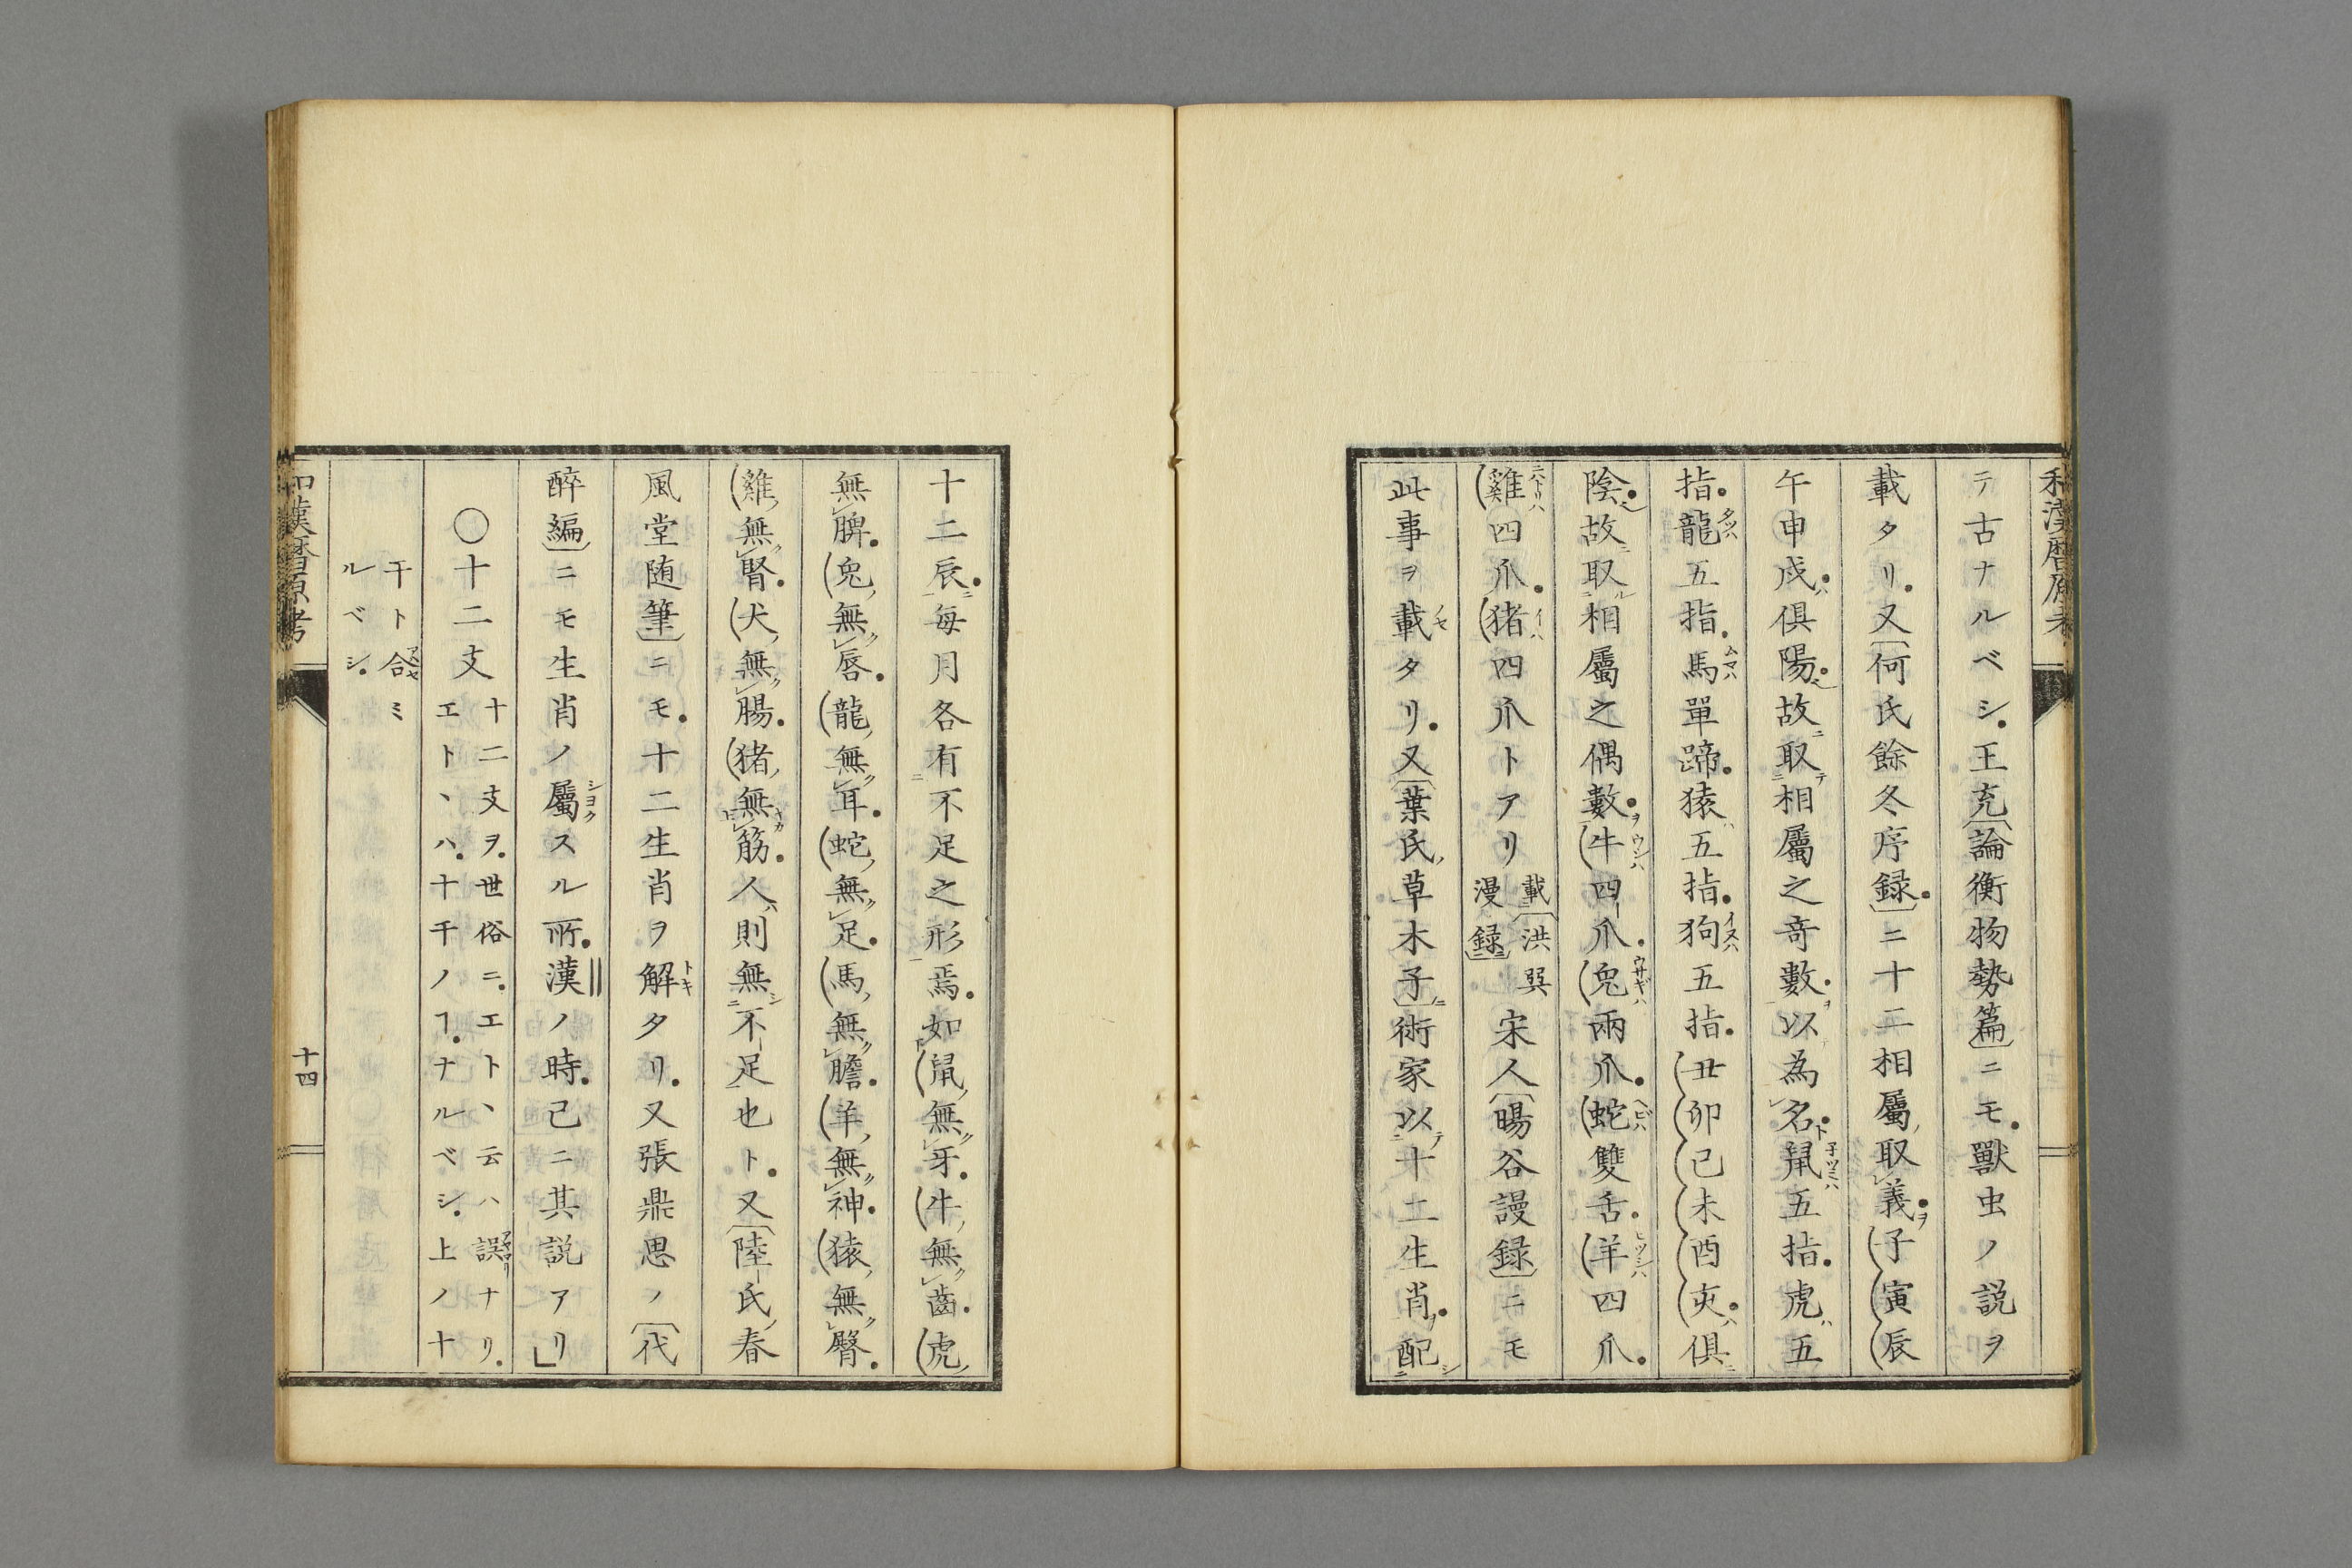 テ古ナルベシ。王充論衡物勢篇ニモ。獣虫ノ説ヲ
載タリ。又何氏餘冬序録。ニ十二相屬取義。子寅辰
午申戌。倶陽。故取相屬之竒數。以為名。鼠五指。虎五
指。龍五指。馬單蹄。猿五指。狗五指。丑卯巳未酉亥。倶
陰。故取相屬之偶數。牛四爪。兔兩爪。蛇雙舌。羊四爪。
雞四爪。猪四爪トアリ載洪巽漫録宋人暘谷謾録ニモ
此事ヲ載タリ。又葉氏草木子術家以十二生肖。配
十二辰。每月各有不足之形焉。如鼠無牙。牛無齒。虎
無脾。兔無唇。龍無耳。蛇無足。馬無膽。羊無神。猿無臀。
雞無腎。犬無腸。猪無筋。人則無不足也ト。又陸氏春
風堂随筆ニモ。十二生肖ヲ解タリ。又張鼎思ノ代
醉編ニモ生肖ノ屬スル所。漢ノ時。已ニ其説アリ
〇十二支十二支ヲ。世俗ニ。エト丶云ハ誤ナリ。
エト丶ハ。十干ノヿ。ナルベシ。上ノ十
干ト合ミ
ルベシ。
和漢暦原考
十四